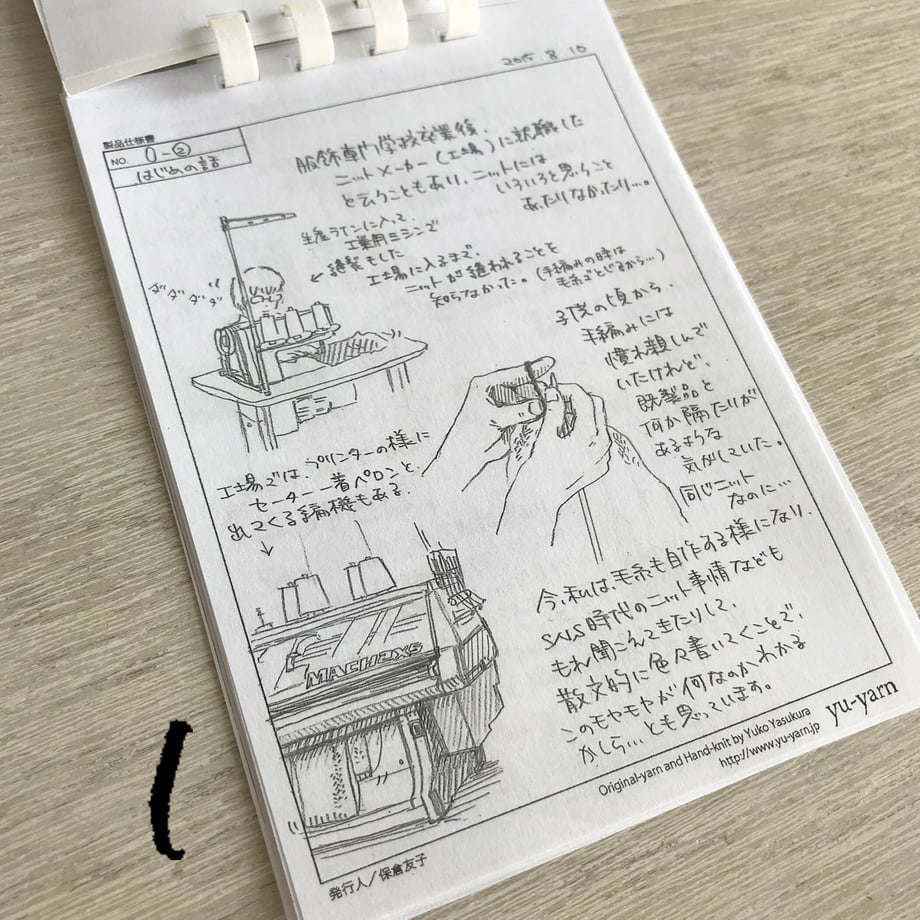 2015.8.10
製品仕様書
NO. 0-②
はじめの話
服飾専門学校卒業後、
ニットメーカー(工場)に就職した
ということもあり、ニットには
いろいろと思うこと
あったりなかったり…。
生産ラインに入って、
工業用ミシンで
縫製もした
工場に入るまで、
ニットが縫われることを
知らなかった。(手編みの時は
毛糸でとじるから…)
ダダダダ
子供の頃から、
手編みには
慣れ親しんで
いたけれど、
既製品と
何か隔たりが
あるような
気がしていた。
同じニット
なのに…
工場では、プリンターの様に
セーター1着ペロンと、
出てくる編機もある。
MACH2XS
今、私は毛糸も自作する様になり、
SNS時代のニット事情なども
もれ聞こえてきたりして、
散文的に色々書いてくことで、
このモヤモヤが何なのかわかる
かしら…とも思っています。
Original-yarn and Hand-knit by Yuko Yasukura
http://www.yu-yarn.jp
yu-yarn
発行人/保倉友子